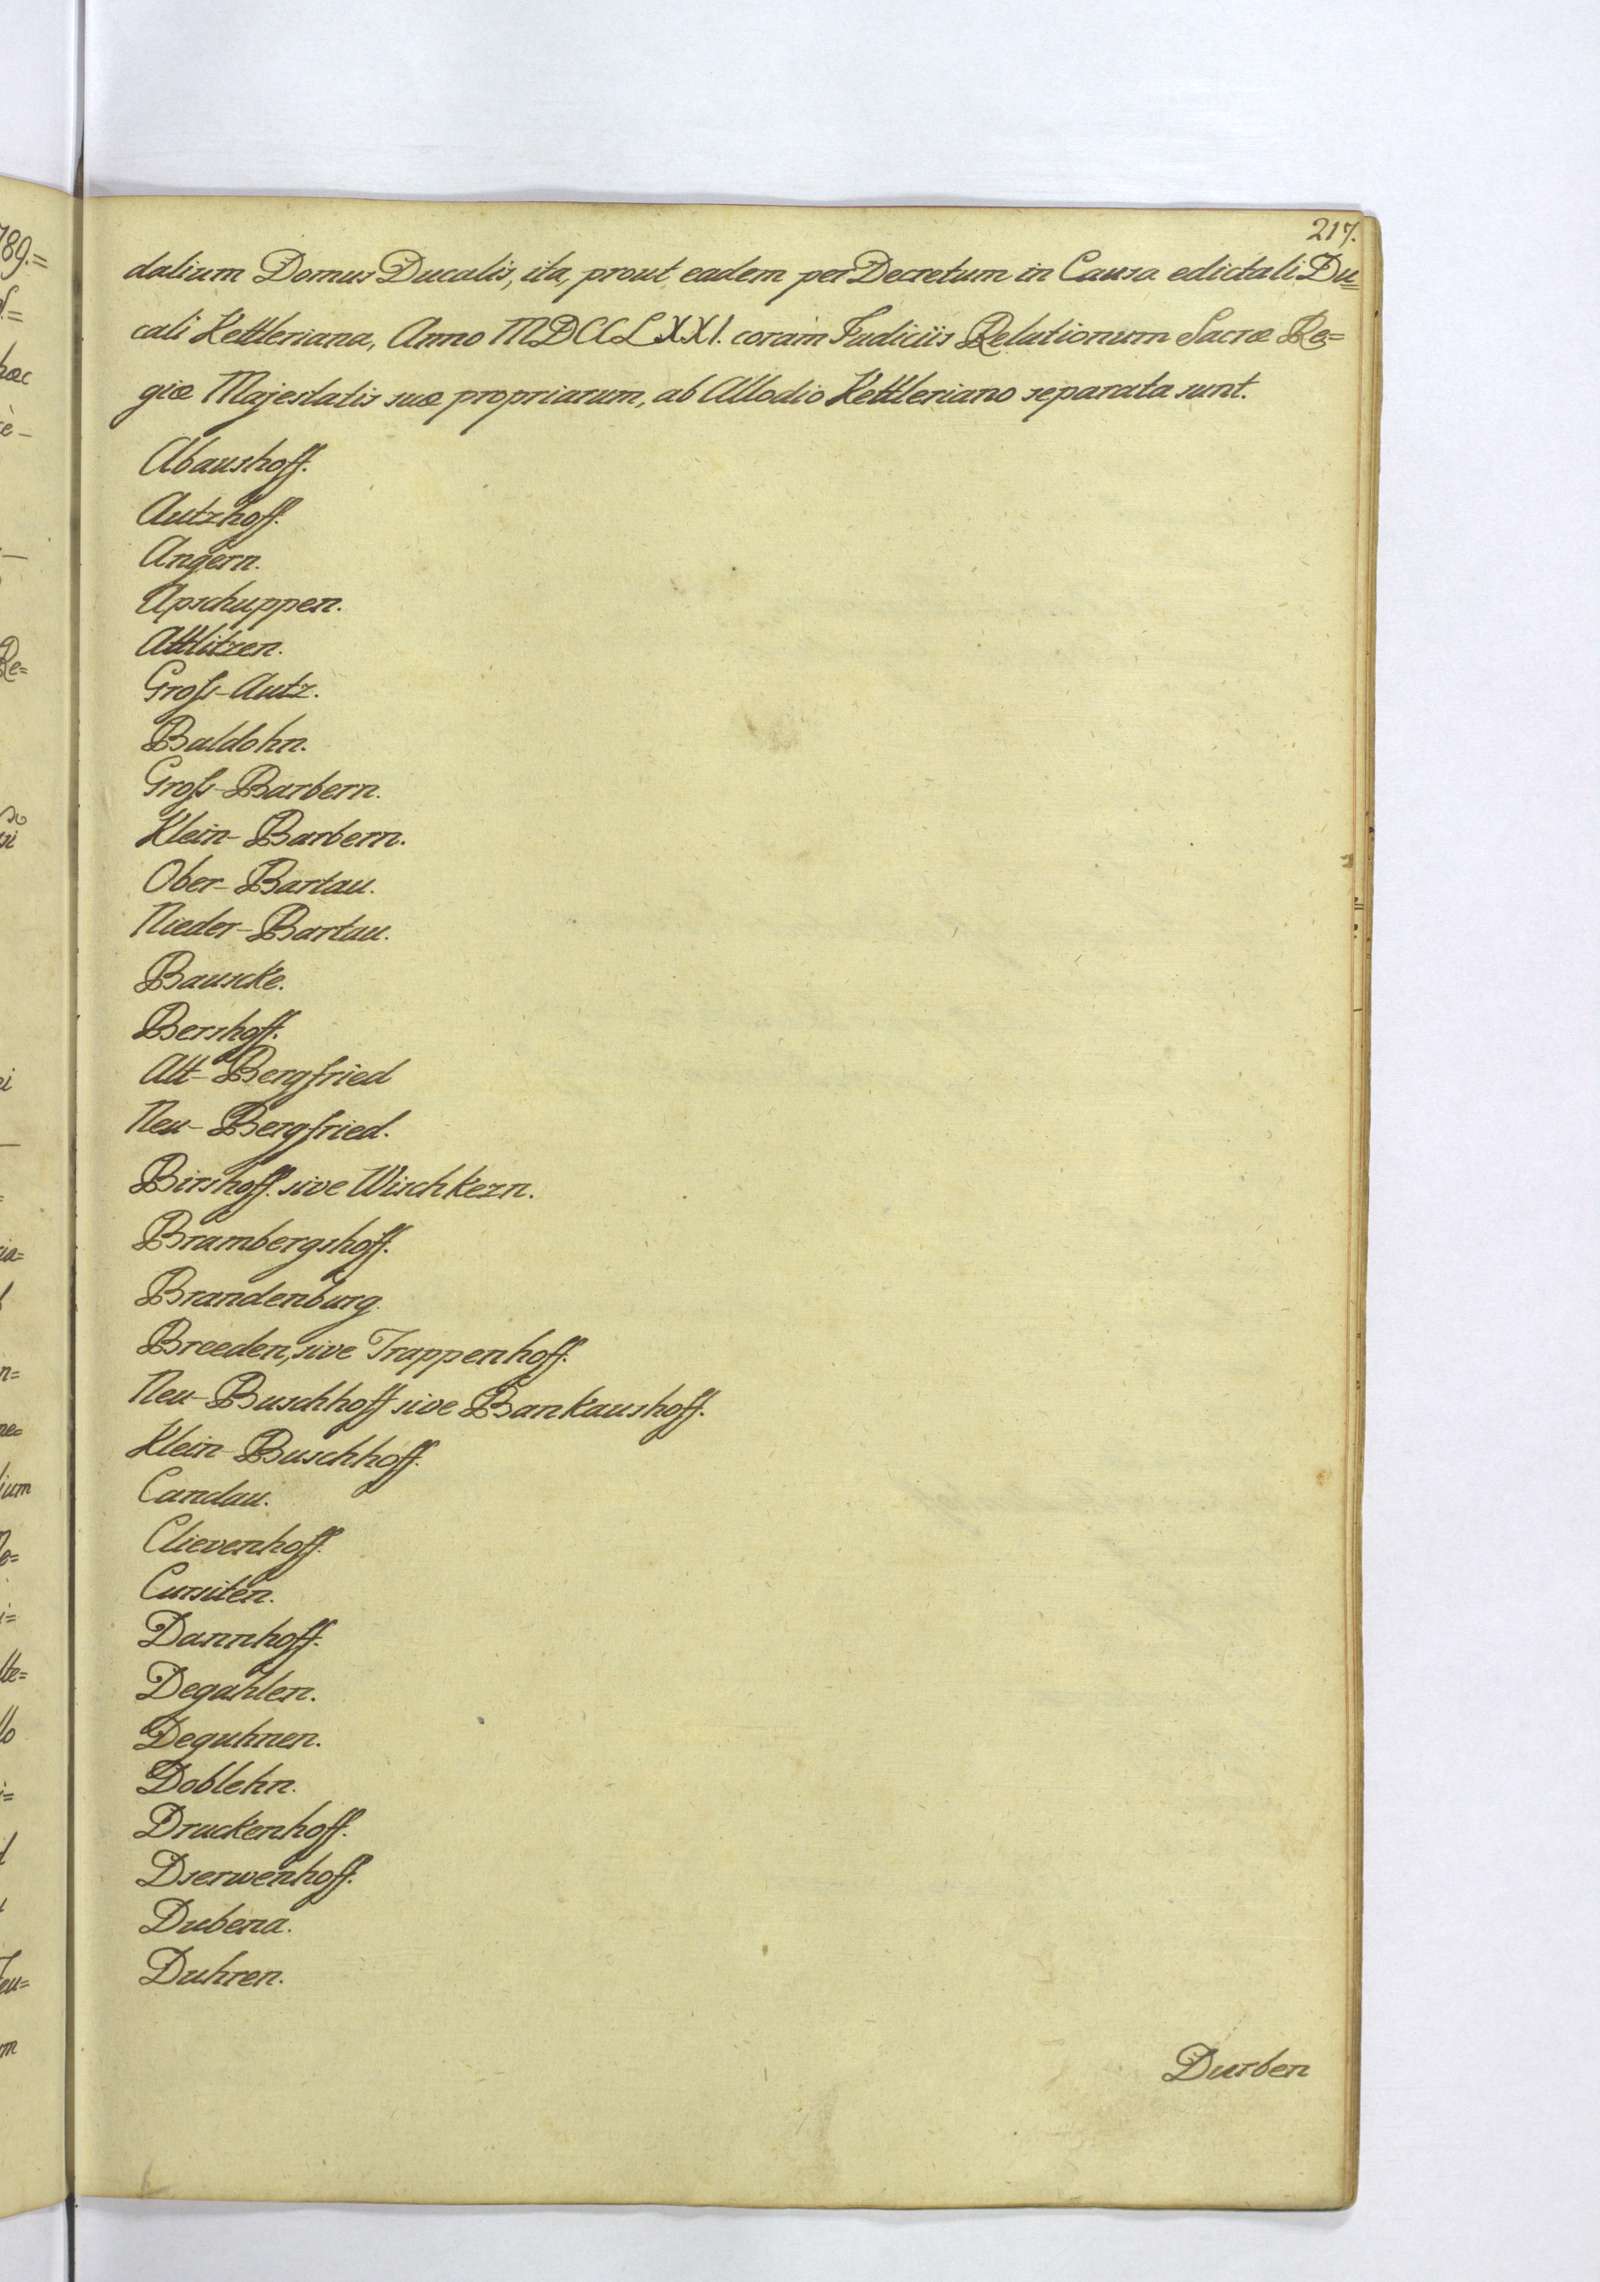 217.
dalium Domus Ducalis, ita, prout eadem per Decretum in Causa edictali Du=
cali Kettleriana, Anno MDCCLXXI. coram Judiciis Relationum Sacræ Re=
giæ Majestatis suæ propriarum, ab Allodio Kettleriano separata sunt.
Abaushoff.
Autzhoff.
Angern.
Apschuppen.
Attlitzen.
Groß-Autz.
Baldohn.
Groß-Barbern.
Klein-Barbern.
Ober-Bartau.
Nieder-Bartau.
Bauscke.
Bershoff.
Alt-Bergfried
Neu-Bergfried.
Birshoff. sive Wischkezn.
Brambergshoff.
Brandenburg.
Breeden, sive Trappenhoff.
Neu-Buschhoff sive Bankaushoff.
Klein-Buschhoff.
Candau.
Clievenhoff.
Cursiten.
Dannhoff.
Degahlen.
Deguhnen.
Doblehn.
Druckenhoff.
Dserwenhoff.
Dubena.
Duhren.
Durben